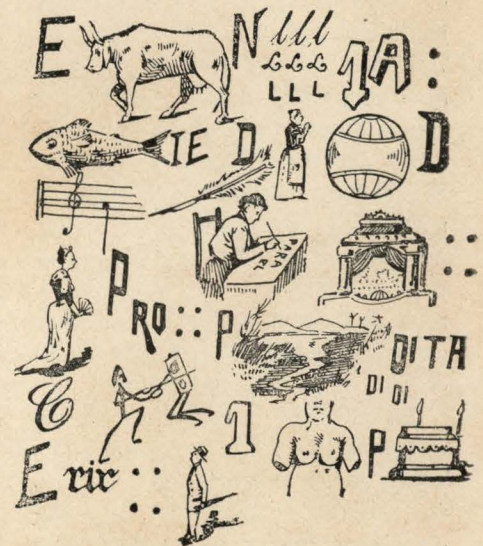 E N lll 1A:
LLL
LLL
IE D D
::
PRO :: P DITA
DI DI
C 1 P
E rir ::